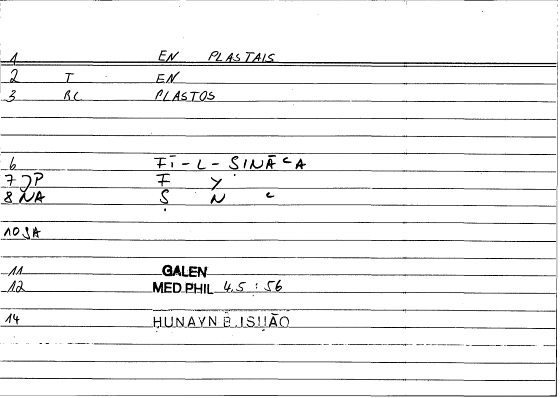 1 EN PLASTAIS
2 T EN
3 BC PLASTOS
6 FĪ-L-ṢINĀᶜA
7 JP F Y
8 NA Ṣ N ᶜ
10 JA
11 GALEN
12 MED.PHIL 4.5 : 56
14 ḤUNAYN B. ISḤĀQ